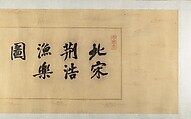 北宋
荆浩
漁樂
圖